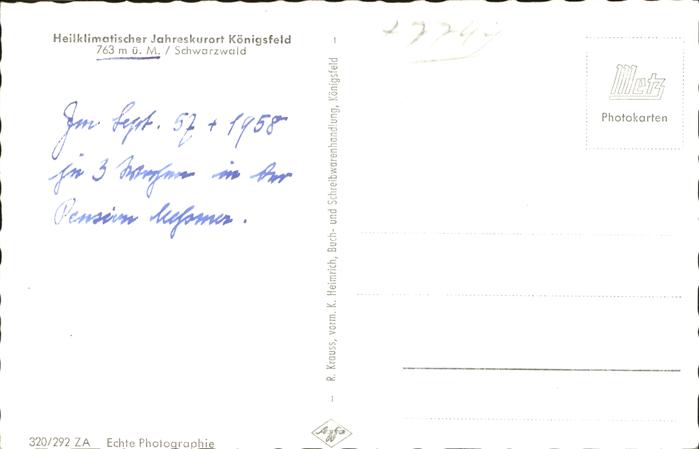 Heilklimatischer Jahreskurort Königsfeld
763 m ü. M. / Schwarzwald
Im Sept. 57 + 1958
je 3 Wochen in der
Pension
R. Krauss, vorm. K. Heimrich, Buch- und Schreibwarenhandlung, Königsfeld
Metz
Photokarten
320/292 ZA Echte Photographie
Agfa